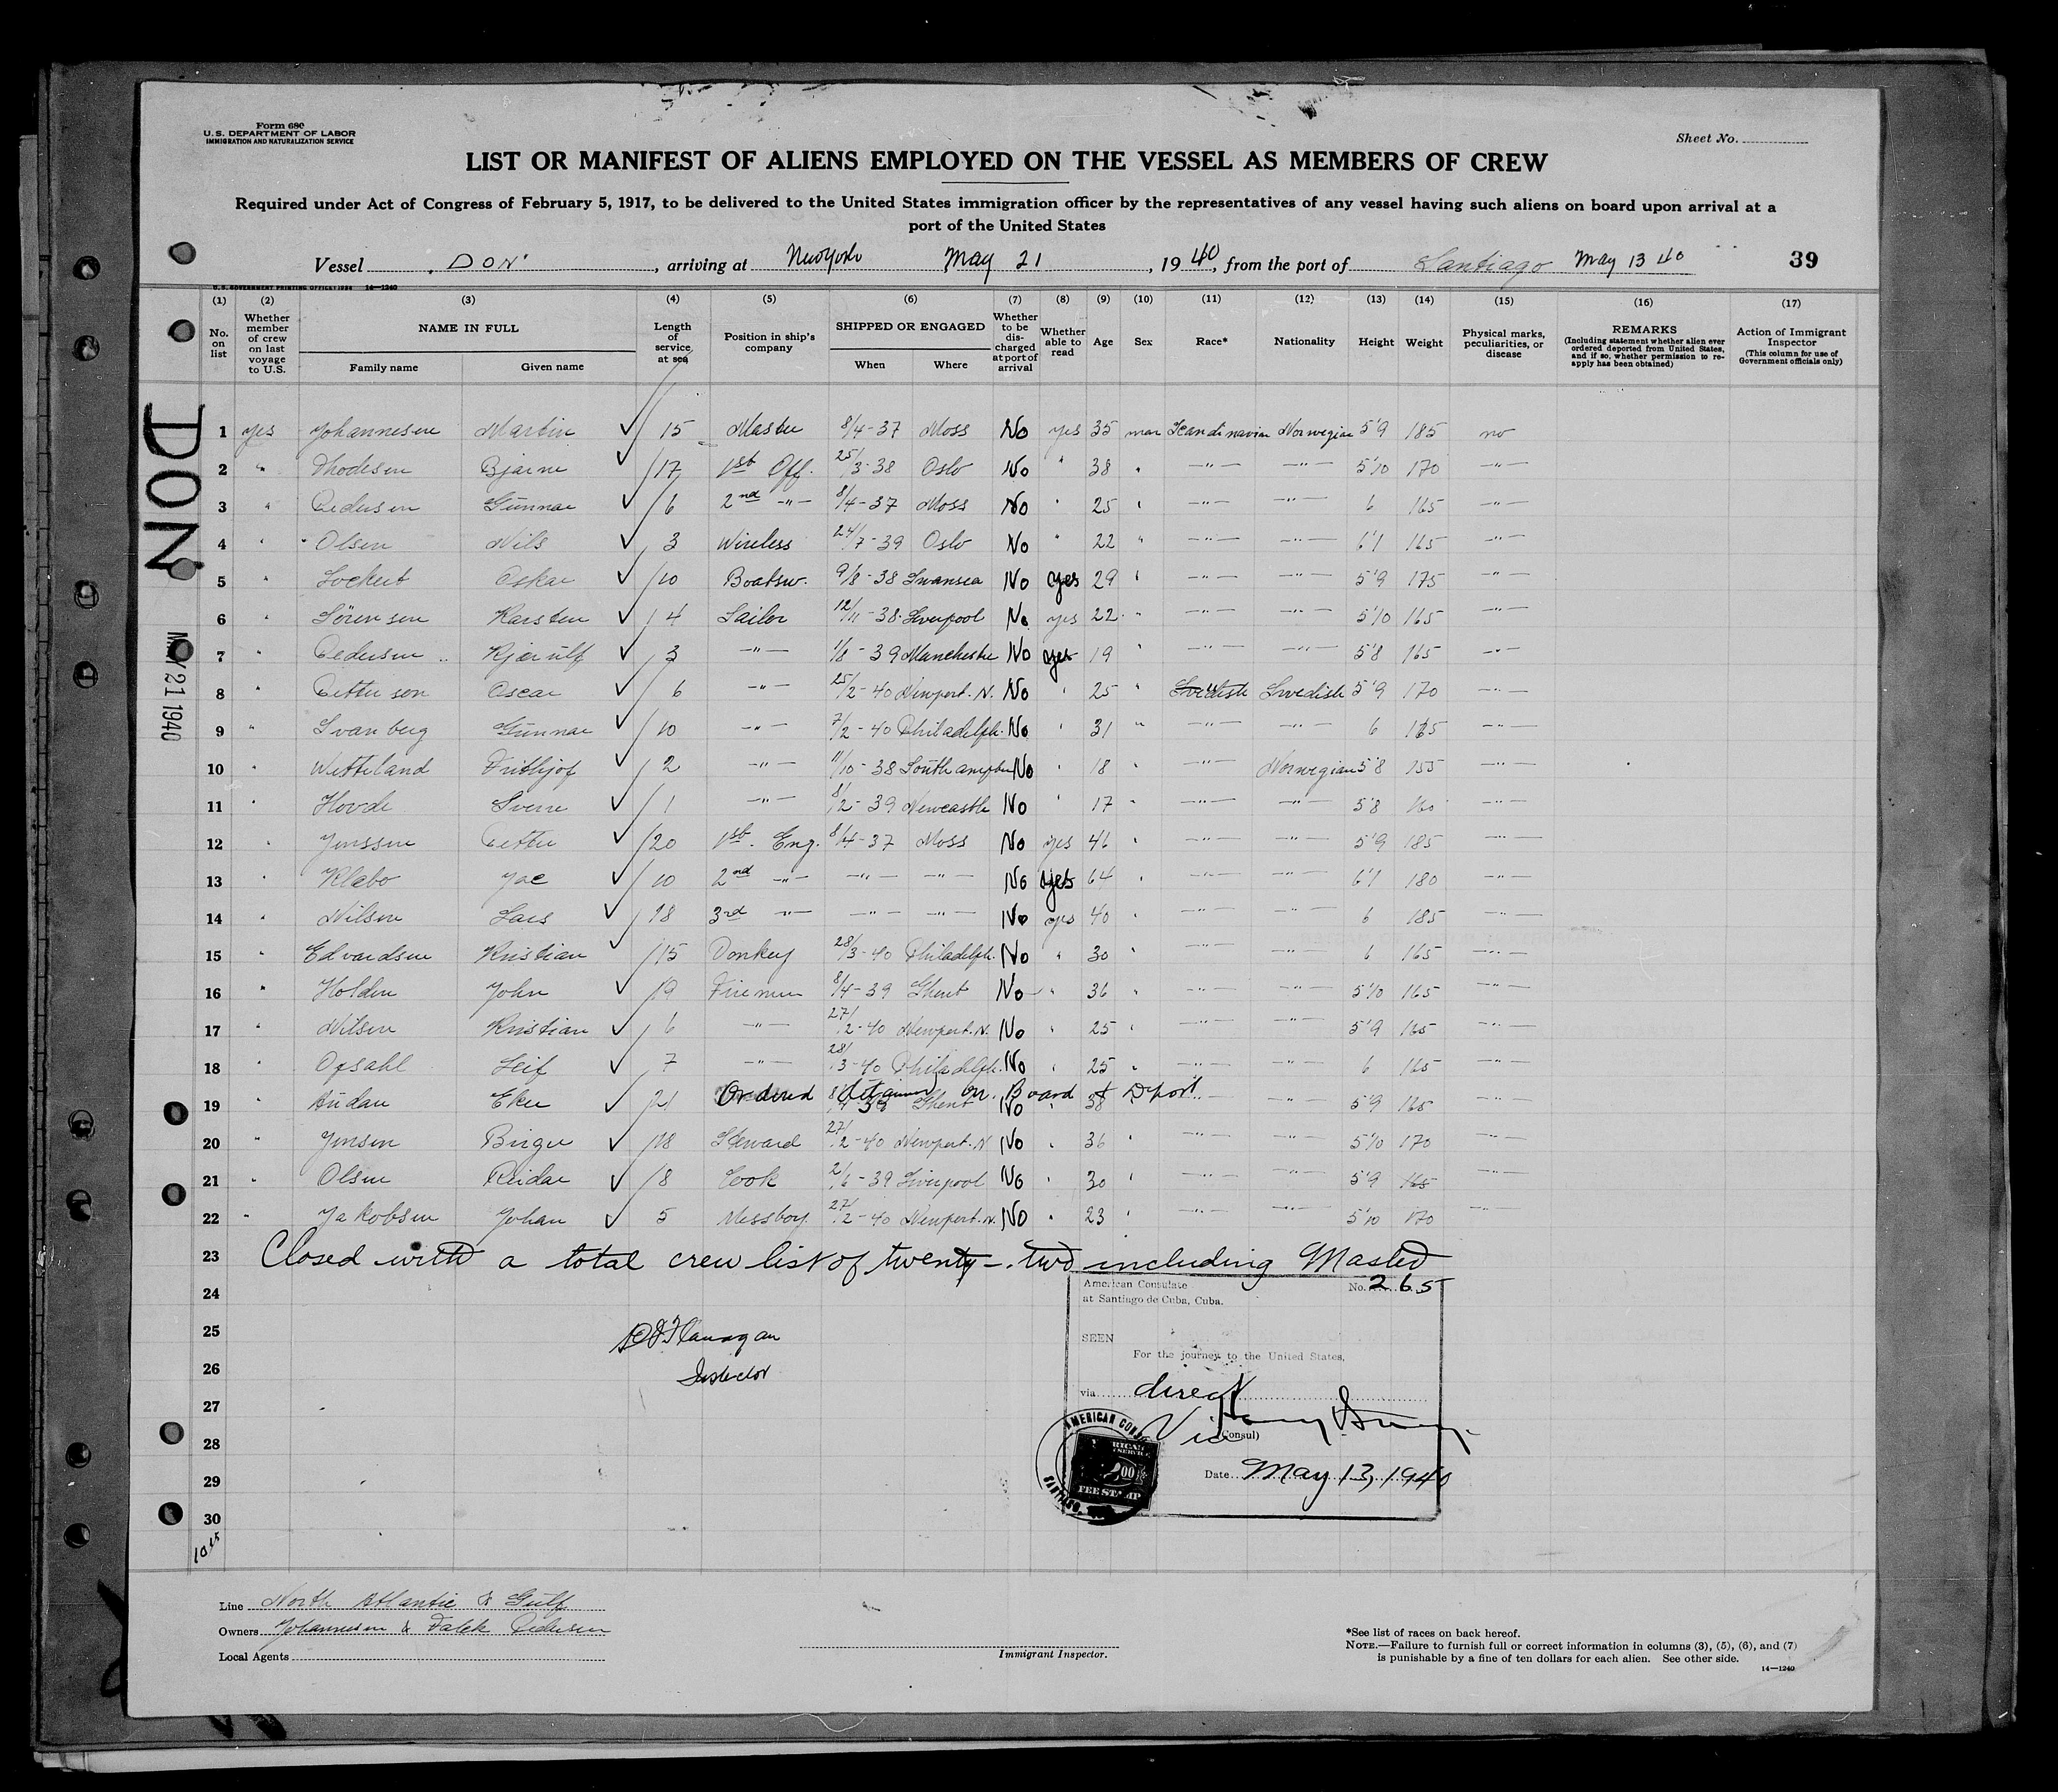 Form 680
U.S. DEPARTMENT OF LABOR
IMMIGRATION AND NATURALIZATION SERVICE
Sheet No.
LIST OR MANIFEST OF ALIENS EMPLOYED ON THE VESSEL AS MEMBERS OF CREW
Required under Act of Congress of February 5, 1917, to be delivered to the United States immigration officer by the representatives of any vessel having such aliens on board upon arrival at a
port of the United States
Vessel "DON", arriving at New York May 21, 1940, from the port of Santiago May 13 40 39
U.S. GOVERNMENT PRINTING OFFICE 14—1240
(1) (2) (3) (4) (5) (6) (7) (8) (9) (10) (11) (12) (13) (14) (15) (16) (17)
No. on list
Whether member of crew on last voyage to U.S.
NAME IN FULL
Family name Given name
Length of service at sea
Position in ship's company
SHIPPED OR ENGAGED
When Where
Whether to be discharged at port of arrival
Whether able to read
Age
Sex
Race*
Nationality
Height
Weight
Physical marks, peculiarities, or disease
REMARKS
(Including statement whether alien ever ordered deported from United States, and if so, whether permission to reapply has been obtained)
Action of Immigrant Inspector
(This column for use of Government officials only)
DON
MAY 21 1940
1 yes Johannesen Martin ✓ 15 Master 8/4-37 Moss No yes 35 man Scandinavian Norwegian 5'9 185 no
2 " Thodesen Bjarne ✓ 17 1st Off. 25/3-38 Oslo No " 38 " —"— —"— 5'10 170 —"—
3 " Pedersen Gunnar ✓ 6 2nd —"— 8/4-37 Moss No " 25 " —"— —"— 6 165 —"—
4 " Olsen Nils ✓ 3 Wireless 24/7-39 Oslo No " 22 " —"— —"— 6'1 165 —"—
5 " Lockert Oskar ✓ 10 Boatsw. 9/8-38 Swansea No yes 29 " —"— —"— 5'9 175 —"—
6 " Sörensen Karsten ✓ 4 Sailor 12/11-38 Liverpool No yes 22 " —"— —"— 5'10 165 —"—
7 " Pedersen Kjærulf ✓ 3 —"— 1/8-39 Manchester No yes 19 " —"— —"— 5'8 165 —"—
8 " Petterson Oscar ✓ 6 —"— 25/2-40 Newport. N. No " 25 " Swedish Swedish 5'9 170 —"—
9 " Svanberg Gunnar ✓ 10 —"— 7/2-40 Philadelph. No " 31 " —"— —"— 6 165 —"—
10 " Wetteland Frithjof ✓ 2 —"— 11/10-38 Southampton No " 18 " —"— Norwegian 5'8 155 —"—
11 " Hovde Sverre ✓ 1 —"— 8/2-39 Newcastle No " 17 " —"— —"— 5'8 160 —"—
12 " Jenssen Petter ✓ 20 1st. Eng. 8/4-37 Moss No yes 46 " —"— —"— 5'9 185 —"—
13 " Klæbo Jac ✓ 10 2nd —"— —"— —"— No yes 64 " —"— —"— 6'1 180 —"—
14 " Nilsen Lars ✓ 18 3rd —"— —"— —"— No yes 40 " —"— —"— 6 185 —"—
15 " Edvardsen Kristian 15 Donkey 28/3-40 Philadelph. No " 30 " —"— —"— 6 165 —"—
16 " Holden John ✓ 19 Firemen 8/4-39 Ghent No " 36 " —"— —"— 5'10 165 —"—
17 " Nilsen Kristian ✓ 6 —"— 27/2-40 Newport. N. No " 25 " —"— —"— 5'9 165 —"—
18 " Opsahl Leif ✓ 7 —"— 28/3-40 Philadelph. No " 25 " —"— —"— 6 165 —"—
Ordered detained on Board & Deport
19 " ✓ 21 8/4-39 Ghent No " 38 —"— —"— 5'9 165 —"—
20 " Jensen Birger ✓ 18 Steward 27/2-40 Newport. N No " 36 " —"— —"— 5'10 170 —"—
21 " Olsen Reidar ✓ 8 Cook 2/6-39 Liverpool No " 30 " —"— —"— 5'9 165 —"—
22 " Jakobsen Johan ✓ 5 Messboy. 27/2-40 Newport. N. No " 23 " —"— —"— 5'10 170 —"—
23 Closed with a total crew list of twenty-two including Master
24
25
26
27
28
29
30
Flanagan
Inspector
American Consulate No. 265
at Santiago de Cuba, Cuba.
SEEN
For the journey to the United States,
via direct
Vice (Consul)
Date May 13, 1940
AMERICAN
SANTIAGO
FEE STAMP
Line North Atlantic & Gulf
Owners Johannesen & Falck Pedersen
Local Agents
Immigrant Inspector.
*See list of races on back hereof.
NOTE.—Failure to furnish full or correct information in columns (3), (5), (6), and (7)
is punishable by a fine of ten dollars for each alien. See other side.
14—1240